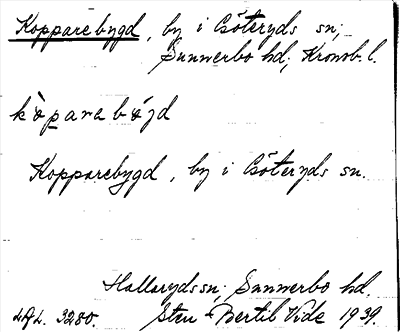 Kopparebygd, by i Göteryds sn;
Sunnerbo hd; Kronob. l.
kȯparabẏgd
Kopparebygd, by i Göteryds sn.
Hallaryds sn; Sunnerbo hd.
LAL. 3280. Sten-Bertil Vide 1939